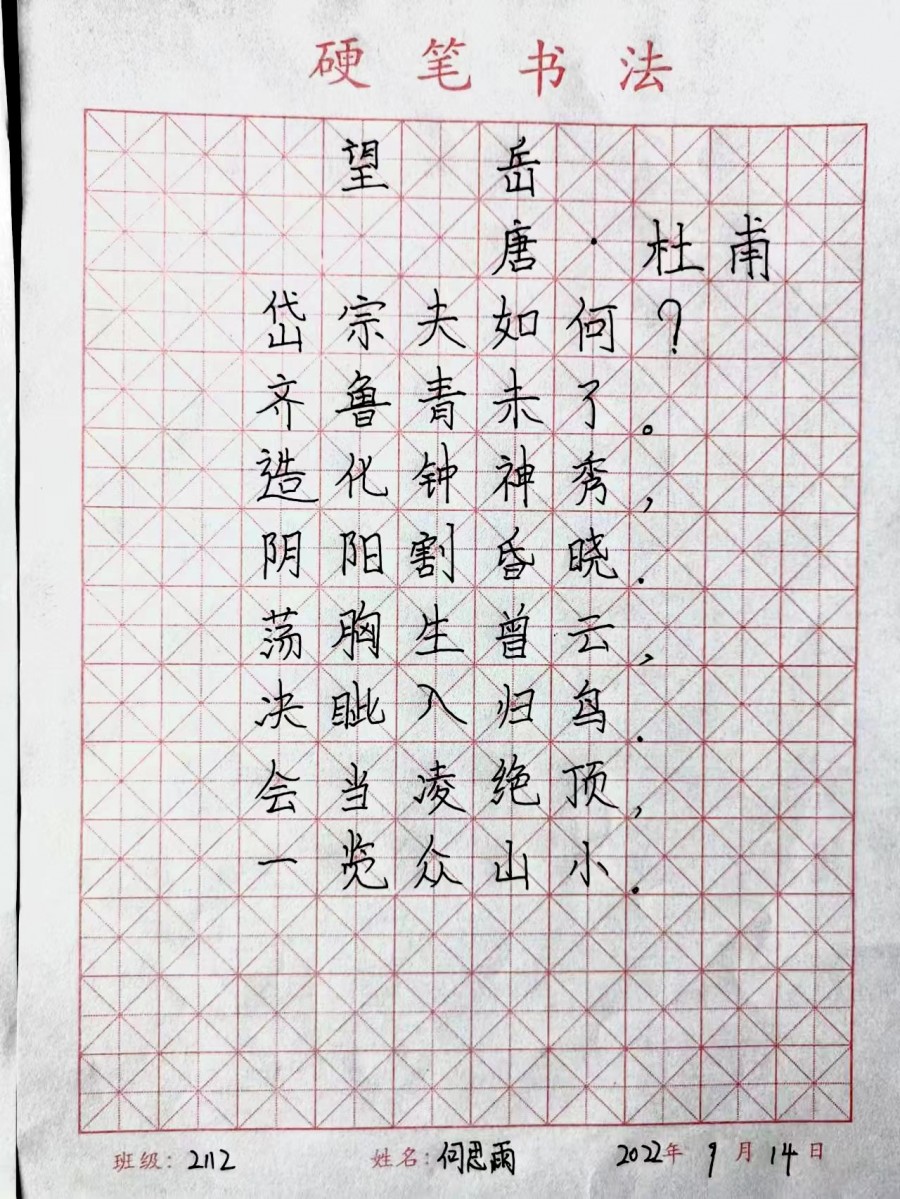 硬笔书法
望岳
唐·杜甫
岱宗夫如何?
齐鲁青未了。
造化钟神秀,
阴阳割昏晓.
荡胸生曾云,
决眦入归鸟.
会当凌绝顶,
一览众山小.
班级:2112 姓名:何思雨 2022年9月14日